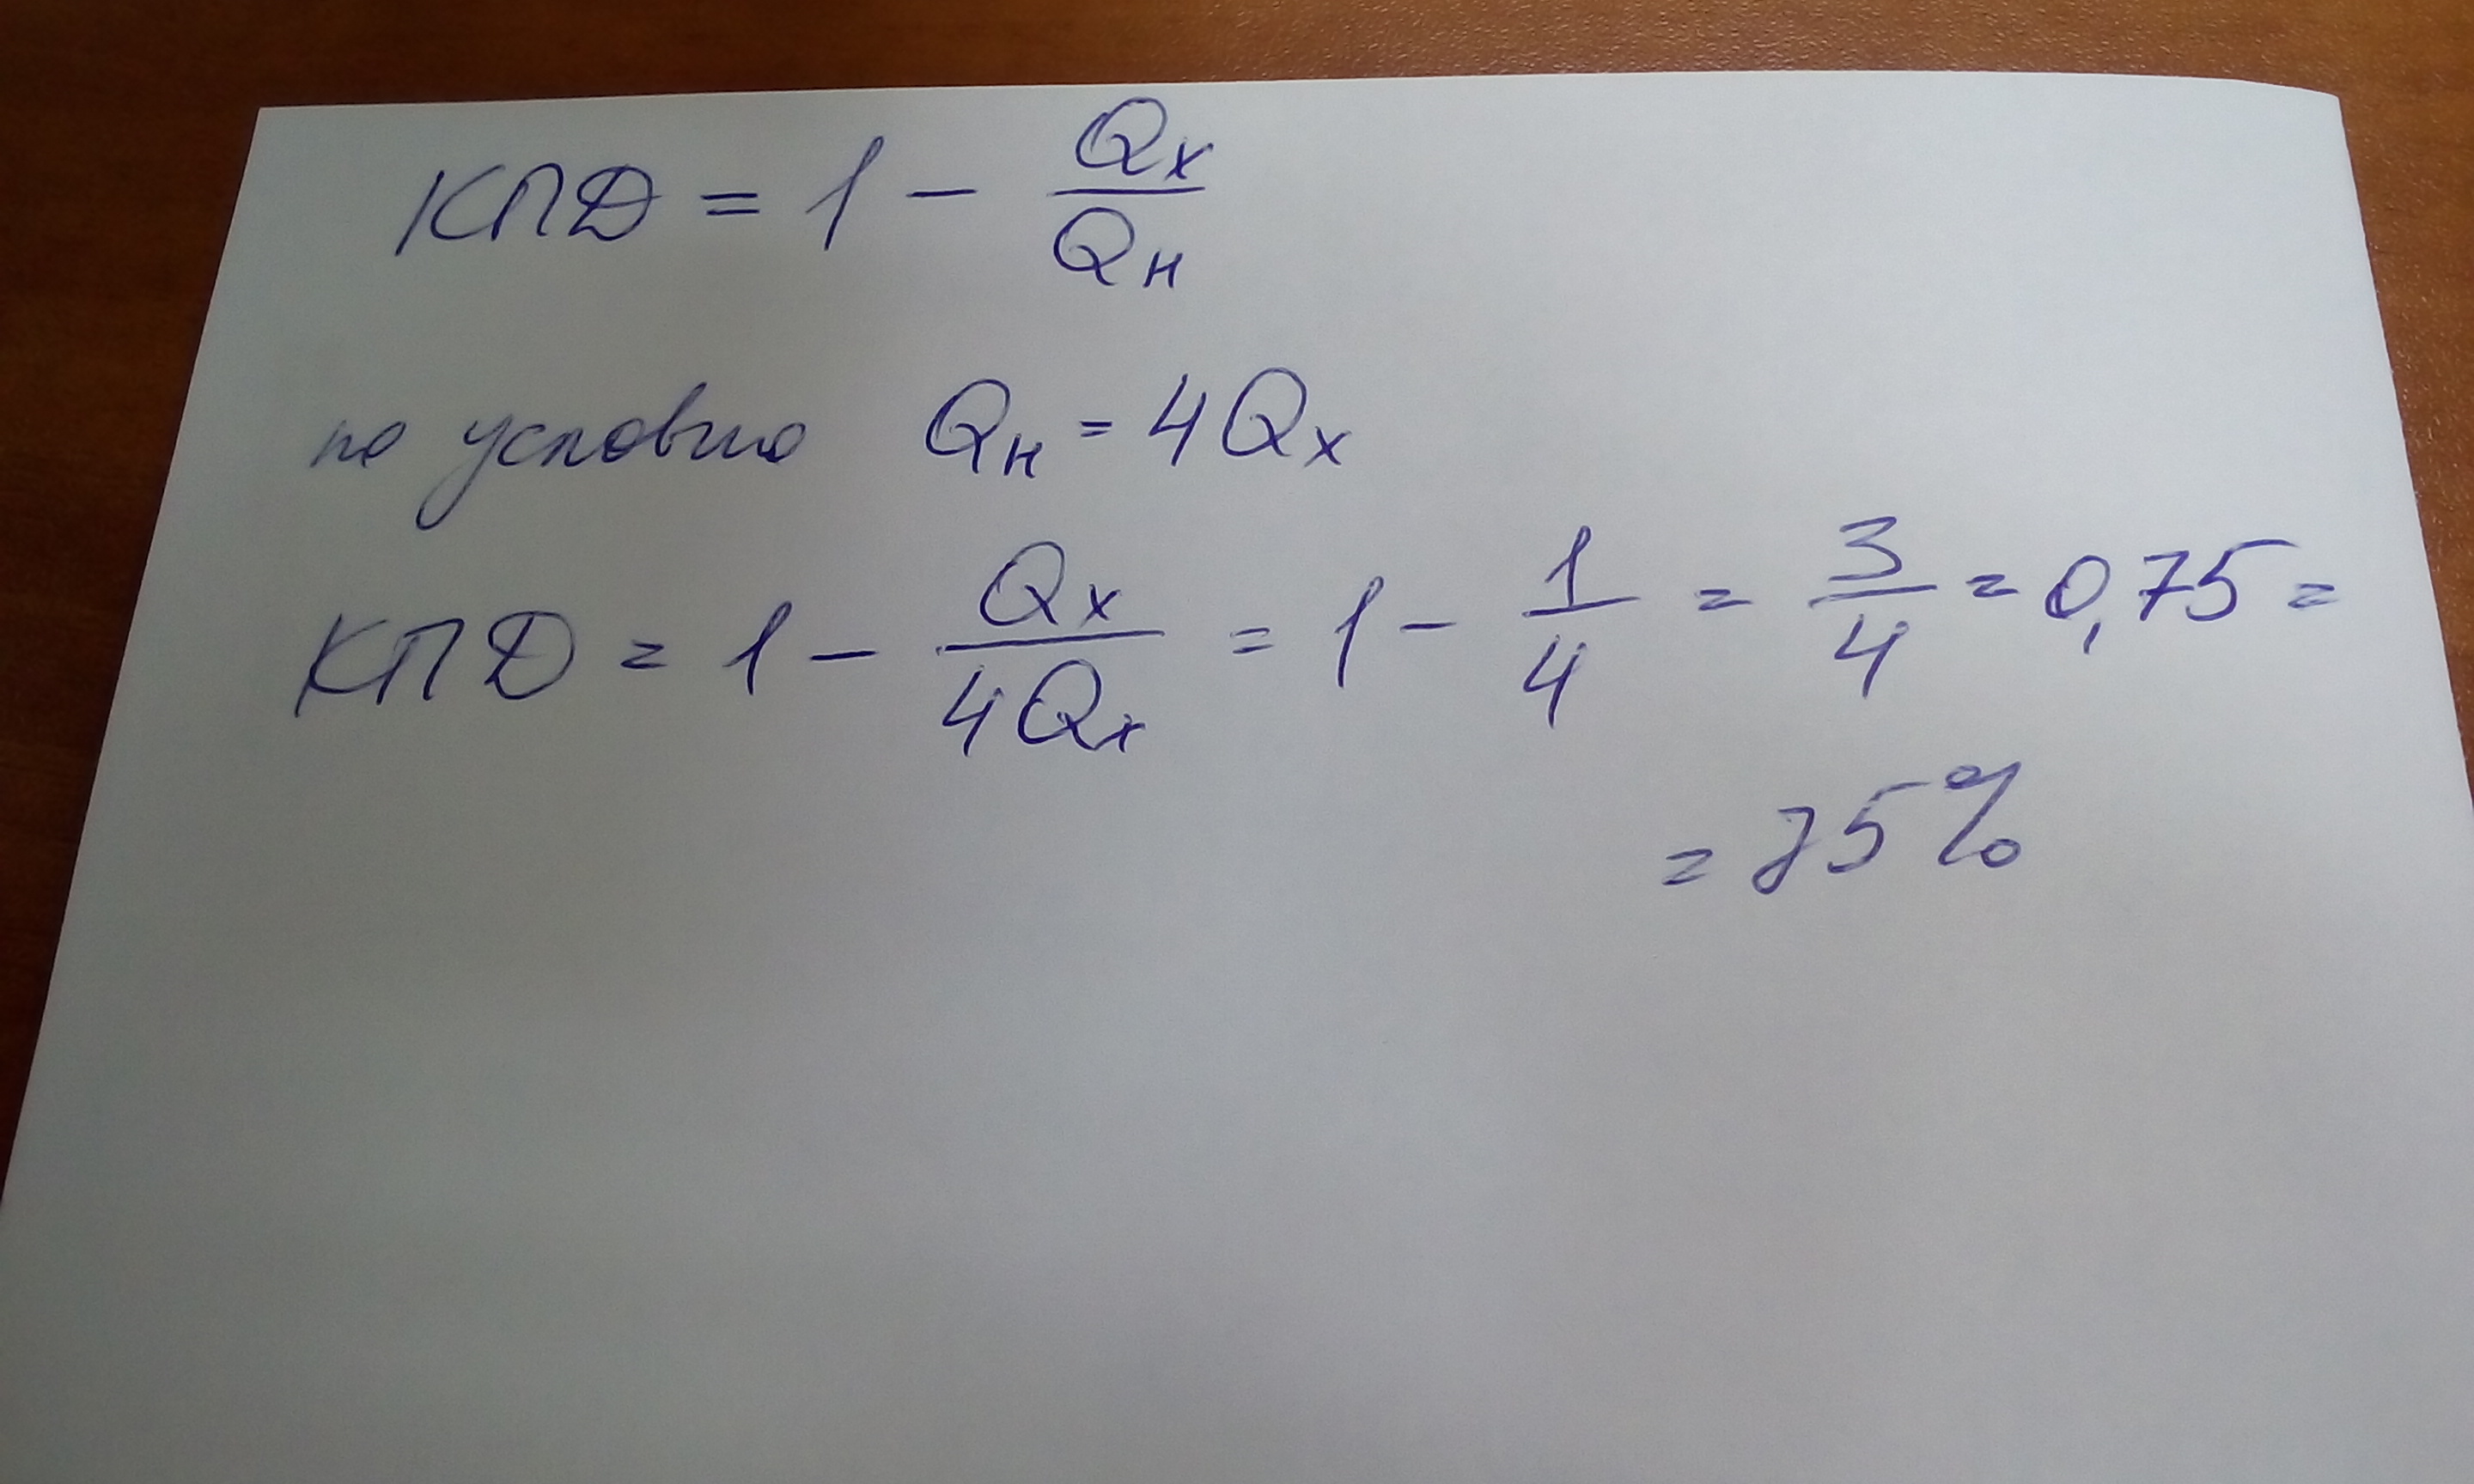 КПД = 1 - Qх/Qн
по условию Qн = 4Qх
КПД = 1 - Qх/4Qх = 1 - 1/4 = 3/4 = 0,75 =
= 75%